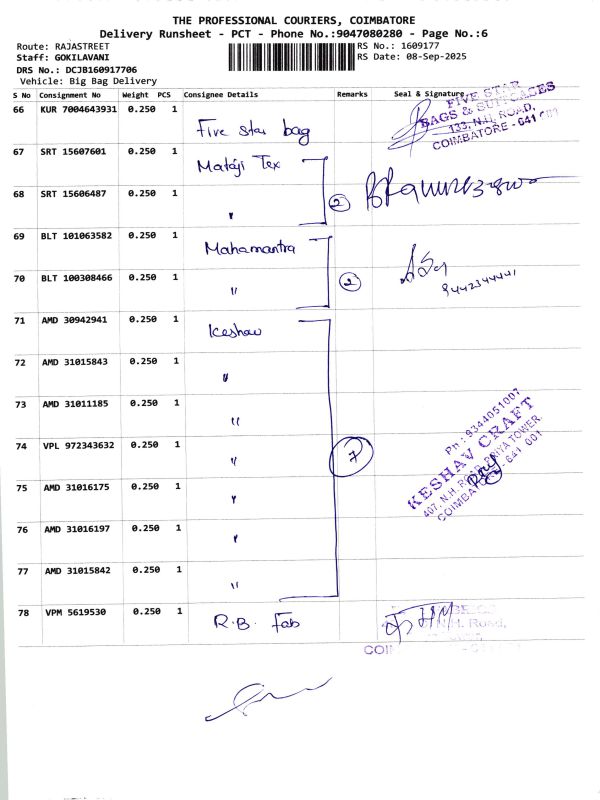 THE PROFESSIONAL COURIERS, COIMBATORE
Delivery Runsheet - PCT - Phone No.:9047080280 - Page No.:6
Route: RAJASTREET RS No.: 1609177
Staff: GOKILAVANI RS Date: 08-Sep-2025
DRS No.: DCJB160917706
Vehicle: Big Bag Delivery
S No Consignment No Weight PCS Consignee Details Remarks Seal & Signature
66 KUR 7004643931 0.250 1 Five star bag
FIVE STAR
BAGS & SUITCASES
133, N.H. ROAD,
COIMBATORE - 641 001
67 SRT 15607601 0.250 1 Mataji Tex
68 SRT 15606487 0.250 1 " 2
69 BLT 101063582 0.250 1 Mahamantra
70 BLT 100308466 0.250 1 " 2
9442344441
71 AMD 30942941 0.250 1 Keshav
72 AMD 31015843 0.250 1 "
73 AMD 31011185 0.250 1 "
74 VPL 972343632 0.250 1 " 7
Pn : 9344051007
KESHAV CRAFT
407, N.H. ROAD, PRIYA TOWER
COIMBATORE - 641 001
75 AMD 31016175 0.250 1 "
76 AMD 31016197 0.250 1 "
77 AMD 31015842 0.250 1 "
78 VPM 5619530 0.250 1 R.B. Fab
N.H. Road,